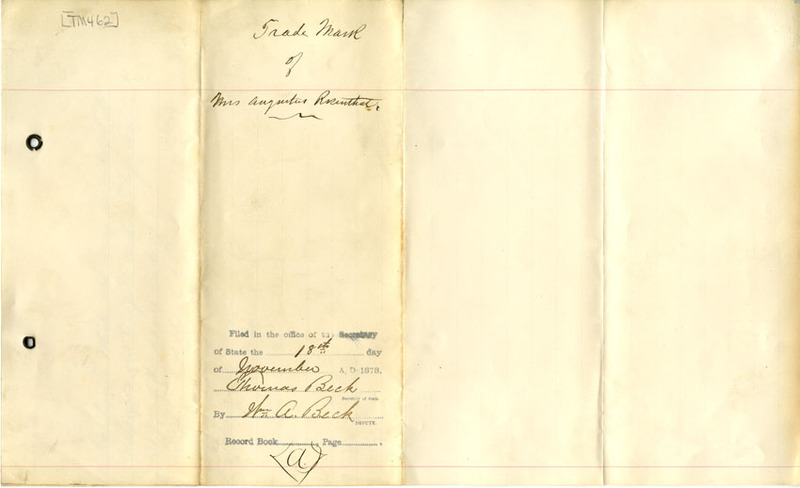 [TM462]
Trade Mark
of
Mrs Augustus Rosenthal.
Filed in the office of the Secretary
of State the 18th day
of November A. D. 1878.
Thomas Beck
Secretary of State
By Wm A. Beck
DEPUTY.
Record Book Page
(A)